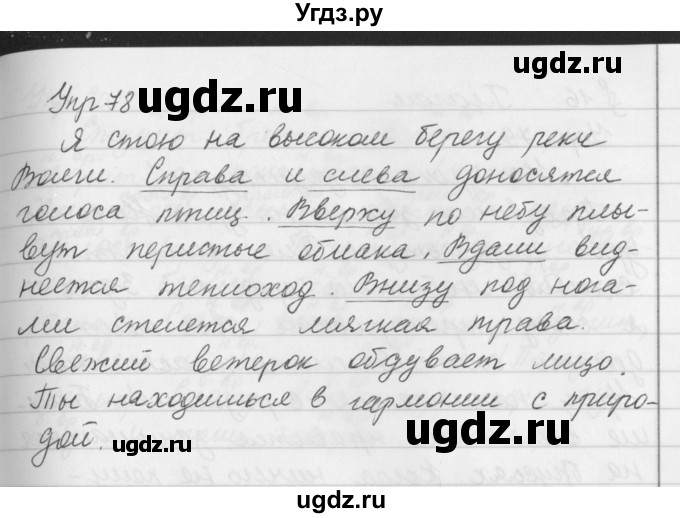 Угдз.ру
Упр 78
ugdz.ru
ugdz.ru
Я стою на высоком берегу реки
Волги. Справа и слева доносятся
голоса птиц. Вверху по небу плы-
вут перистые облака. Вдали вид-
неется теплоход. Внизу под нога-
ми стелется мягкая трава.
Свежий ветерок обдувает лицо.
Ты находишься в гармонии с приро-
дой.
ugdz.ru
ugdz.ru
ugdz.ru